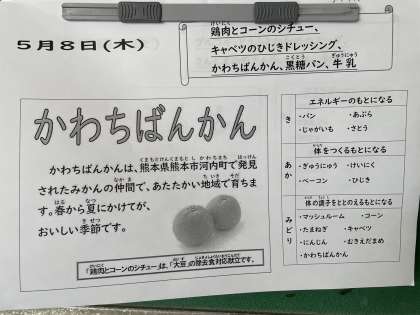 5月8日(木)
鶏肉とコーンのシチュー、
キャベツのひじきドレッシング、
かわちばんかん、黒糖パン、牛乳
かわちばんかん
かわちばんかんは、熊本県熊本市河内町で発見
されたみかんの仲間で、あたたかい地域で育ちま
す。春から夏にかけてが、
おいしい季節です。
「鶏肉とコーンのシチュー」は、「大豆」の除去食対応献立です。
き
エネルギーのもとになる
・パン ・あぶら
・じゃがいも ・さとう
あか
体をつくるもとになる
・ぎゅうにゅう ・けいにく
・ベーコン ・ひじき
みどり
体の調子をととのえるもとになる
・マッシュルーム ・コーン
・たまねぎ ・キャベツ
・にんじん ・むきえだまめ
・かわちばんかん